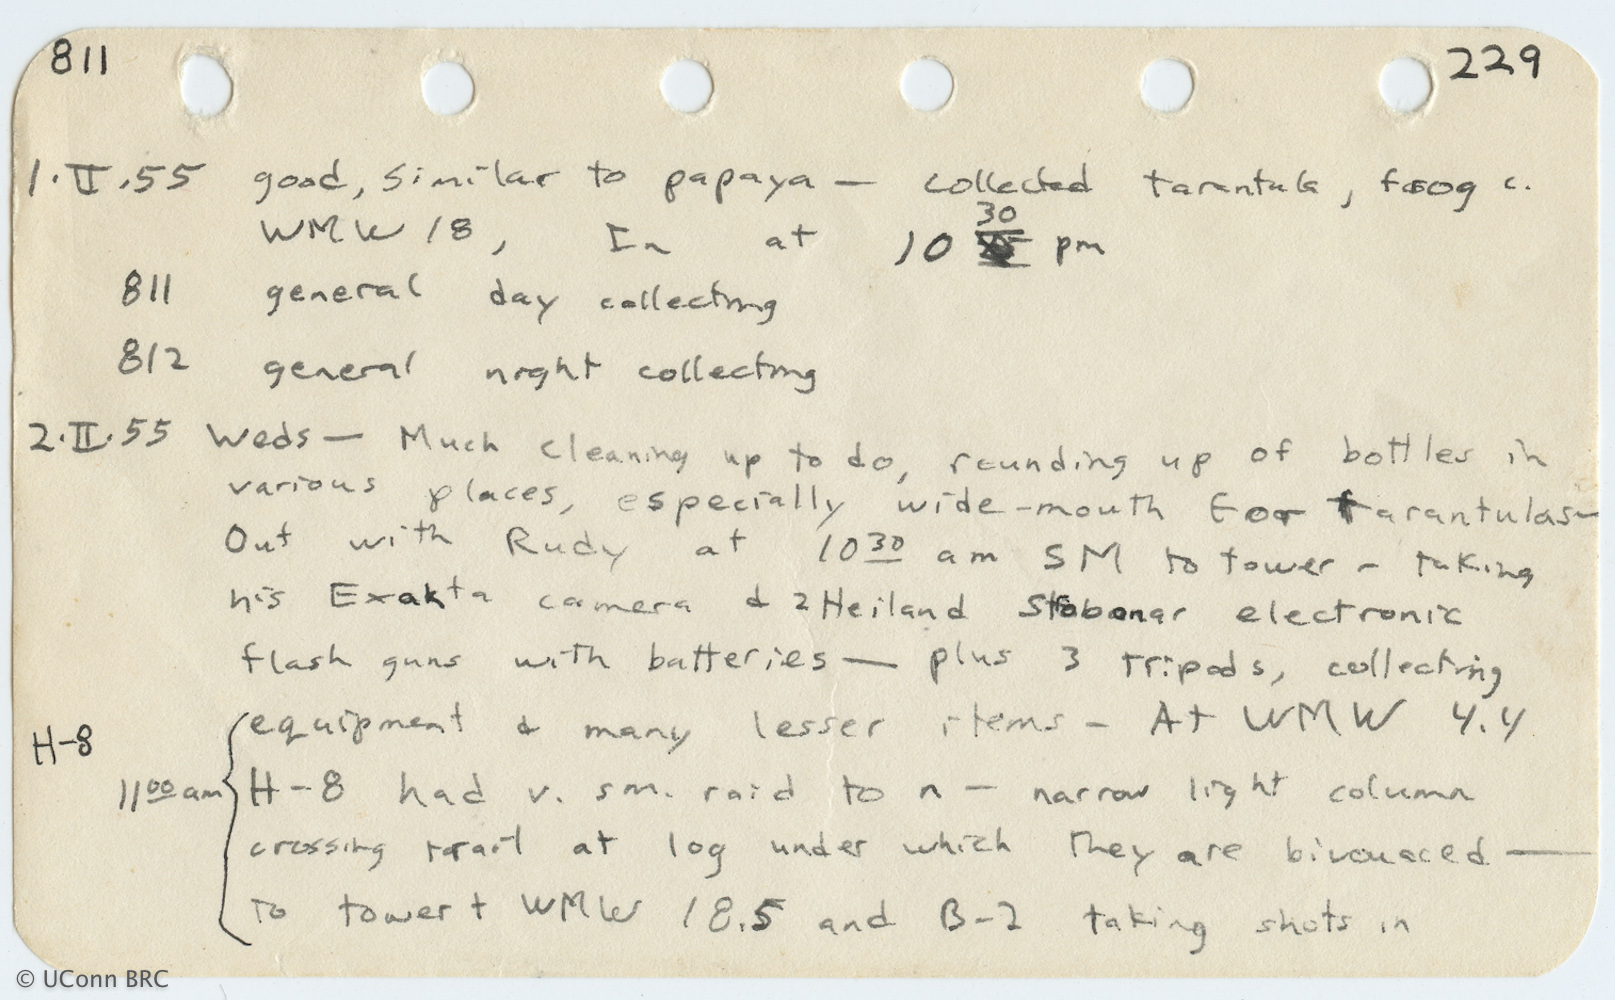 811 229
1.II.55 good, similar to papaya — collected tarantula, frog c.
WMW 18, In at 10 30 pm
811 general day collecting
812 general night collecting
2.II.55 Weds — Much cleaning up to do, rounding up of bottles in
various places, especially wide-mouth for tarantulas—
Out with Rudy at 10 30 am SM to tower - taking
his Exakta camera & 2 Heiland Strobonar electronic
flash guns with batteries — plus 3 tripods, collecting
equipment & many lesser items - At WMW 4.4
H-8
11 00 am H-8 had v. sm. raid to n — narrow light column
crossing trail at log under which they are bivouaced —
to tower + WMW 18.5 and B-2 taking shots in
© UConn BRC